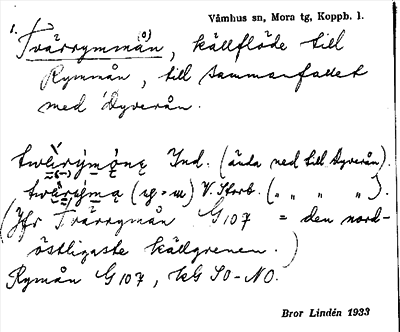 Våmhus sn, Mora tg, Koppb. l.
1.
Tvärrymmån(o), källflöde till
Rymmån, till sammanfallet
med Dyverån.
Ind. (ända ned till Dyverån).
V. Storb. („ „ „ „).
(Jfr Tvärrymån G107 = den nord-
östligaste källgrenen.)
Rymån G107, kG SO-NO.
Bror Lindén 1933